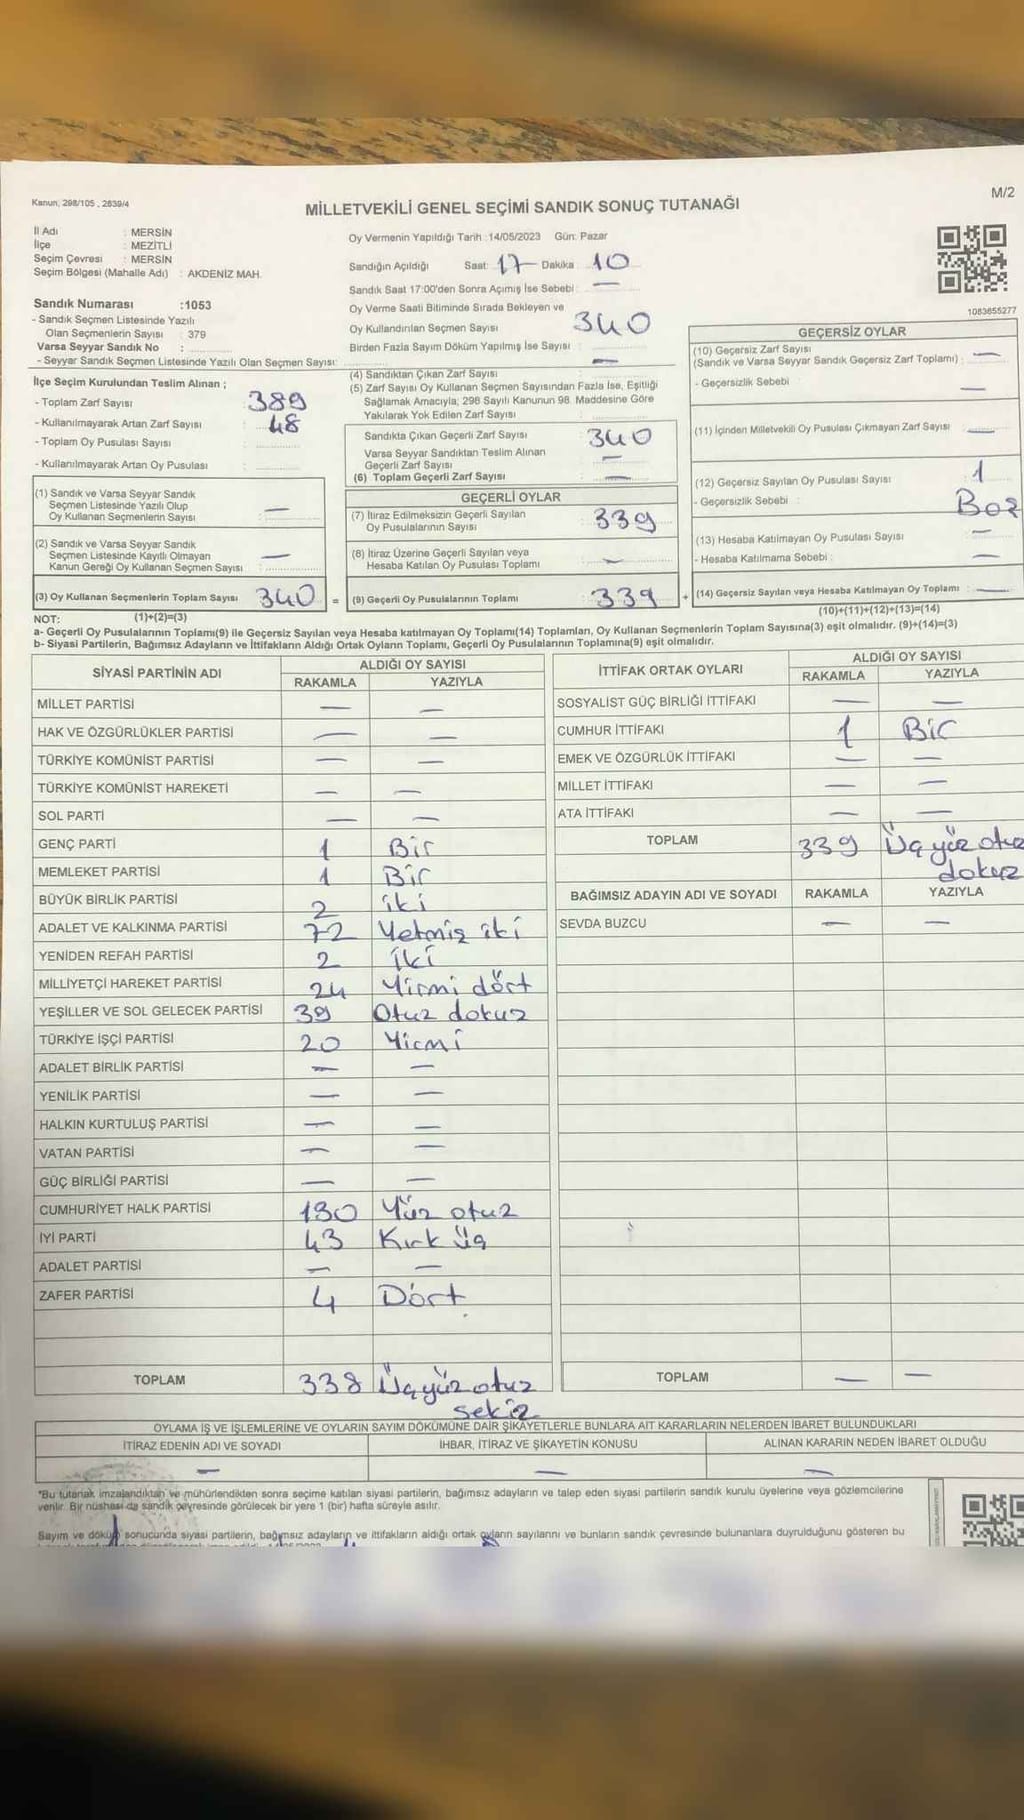 M/2
Kanun, 298/105 , 2839/4
MİLLETVEKİLİ GENEL SEÇİMİ SANDIK SONUÇ TUTANAĞI
İl Adı : MERSİN
İlçe : MEZİTLİ
Seçim Çevresi : MERSİN
Seçim Bölgesi (Mahalle Adı) : AKDENİZ MAH.
Sandık Numarası :1053
- Sandık Seçmen Listesinde Yazılı
Olan Seçmenlerin Sayısı : 379
Varsa Seyyar Sandık No :
- Seyyar Sandık Seçmen Listesinde Yazılı Olan Seçmen Sayısı:
Oy Vermenin Yapıldığı Tarih :14/05/2023 Gün: Pazar
Sandığın Açıldığı Saat: 17 Dakika : 10
Sandık Saat 17:00'den Sonra Açımış İse Sebebi : —
Oy Verme Saati Bitiminde Sırada Bekleyen ve
Oy Kullandırılan Seçmen Sayısı : 340
Birden Fazla Sayım Döküm Yapılmış İse Sayısı :
1083655277
İlçe Seçim Kurulundan Teslim Alınan ;
- Toplam Zarf Sayısı : 389
- Kullanılmayarak Artan Zarf Sayısı : 48
- Toplam Oy Pusulası Sayısı :
- Kullanılmayarak Artan Oy Pusulası :
(1) Sandık ve Varsa Seyyar Sandık
Seçmen Listesinde Yazılı Olup
Oy Kullanan Seçmenlerin Sayısı : —
(2) Sandık ve Varsa Seyyar Sandık
Seçmen Listesinde Kayıtlı Olmayan
Kanun Gereği Oy Kullanan Seçmen Sayısı : —
(3) Oy Kullanan Seçmenlerin Toplam Sayısı 340 =
(4) Sandıktan Çıkan Zarf Sayısı : —
(5) Zarf Sayısı Oy Kullanan Seçmen Sayısından Fazla İse, Eşitliği
Sağlamak Amacıyla; 298 Sayılı Kanunun 98. Maddesine Göre
Yakılarak Yok Edilen Zarf Sayısı :
Sandıkta Çıkan Geçerli Zarf Sayısı : 340
Varsa Seyyar Sandıktan Teslim Alınan
Geçerli Zarf Sayısı : —
(6) Toplam Geçerli Zarf Sayısı : —
GEÇERLİ OYLAR
(7) İtiraz Edilmeksizin Geçerli Sayılan
Oy Pusulalarının Sayısı : 339
(8) İtiraz Üzerine Geçerli Sayılan veya
Hesaba Katılan Oy Pusulası Toplamı : —
(9) Geçerli Oy Pusulalarının Toplamı : 339 +
GEÇERSİZ OYLAR
(10) Geçersiz Zarf Sayısı
(Sandık ve Varsa Seyyar Sandık Geçersiz Zarf Toplamı) : —
- Geçersizlik Sebebi : —
(11) İçinden Milletvekili Oy Pusulası Çıkmayan Zarf Sayısı : —
(12) Geçersiz Sayılan Oy Pusulası Sayısı : 1
- Geçersizlik Sebebi : Boş
(13) Hesaba Katılmayan Oy Pusulası Sayısı : —
- Hesaba Katılmama Sebebi : —
(14) Geçersiz Sayılan veya Hesaba Katılmayan Oy Toplamı : —
NOT: (1)+(2)=(3)
(10)+(11)+(12)+(13)=(14)
a- Geçerli Oy Pusulalarının Toplamı(9) ile Geçersiz Sayılan veya Hesaba katılmayan Oy Toplamı(14) Toplamları, Oy Kullanan Seçmenlerin Toplam Sayısına(3) eşit olmalıdır. (9)+(14)=(3)
b- Siyasi Partilerin, Bağımsız Adayların ve İttifakların Aldığı Ortak Oyların Toplamı, Geçerli Oy Pusulalarının Toplamına(9) eşit olmalıdır.
SİYASİ PARTİNİN ADI ALDIĞI OY SAYISI
RAKAMLA YAZIYLA
MİLLET PARTİSİ — —
HAK VE ÖZGÜRLÜKLER PARTİSİ — —
TÜRKİYE KOMÜNİST PARTİSİ — —
TÜRKİYE KOMÜNİST HAREKETİ — —
SOL PARTİ — —
GENÇ PARTİ 1 Bir
MEMLEKET PARTİSİ 1 Bir
BÜYÜK BİRLİK PARTİSİ 2 iki
ADALET VE KALKINMA PARTİSİ 72 Yetmiş iki
YENİDEN REFAH PARTİSİ 2 İki
MİLLİYETÇİ HAREKET PARTİSİ 24 Yirmi dört
YEŞİLLER VE SOL GELECEK PARTİSİ 39 Otuz dokuz
TÜRKİYE İŞÇİ PARTİSİ 20 Yirmi
ADALET BİRLİK PARTİSİ — —
YENİLİK PARTİSİ — —
HALKIN KURTULUŞ PARTİSİ — —
VATAN PARTİSİ — —
GÜÇ BİRLİĞİ PARTİSİ — —
CUMHURİYET HALK PARTİSİ 130 Yüz otuz
İYİ PARTİ 43 Kırk üç
ADALET PARTİSİ — —
ZAFER PARTİSİ 4 Dört
TOPLAM 338 Üçyüz otuz
sekiz
İTTİFAK ORTAK OYLARI ALDIĞI OY SAYISI
RAKAMLA YAZIYLA
SOSYALİST GÜÇ BİRLİĞİ İTTİFAKI — —
CUMHUR İTTİFAKI 1 Bir
EMEK VE ÖZGÜRLÜK İTTİFAKI — —
MİLLET İTTİFAKI — —
ATA İTTİFAKI — —
TOPLAM 339 Üçyüz otuz
dokuz
BAĞIMSIZ ADAYIN ADI VE SOYADI RAKAMLA YAZIYLA
SEVDA BUZCU — —
TOPLAM — —
OYLAMA İŞ VE İŞLEMLERİNE VE OYLARIN SAYIM DÖKÜMÜNE DAİR ŞİKAYETLERLE BUNLARA AİT KARARLARIN NELERDEN İBARET BULUNDUKLARI
İTİRAZ EDENİN ADI VE SOYADI İHBAR, İTİRAZ VE ŞİKAYETİN KONUSU ALINAN KARARIN NEDEN İBARET OLDUĞU
— — —
"Bu tutanak imzalandıktan ve mühürlendikten sonra seçime katılan siyasi partilerin, bağımsız adayların ve talep eden siyasi partilerin sandık kurulu üyelerine veya gözlemcilerine
verilir. Bir nüshası da sandık çevresinde görülecek bir yere 1 (bir) hafta süreyle asılır.
Sayım ve döküm sonucunda siyasi partilerin, bağımsız adayların ve ittifakların aldığı ortak oyların sayılarını ve bunların sandık çevresinde bulunanlara duyrulduğunu gösteren bu